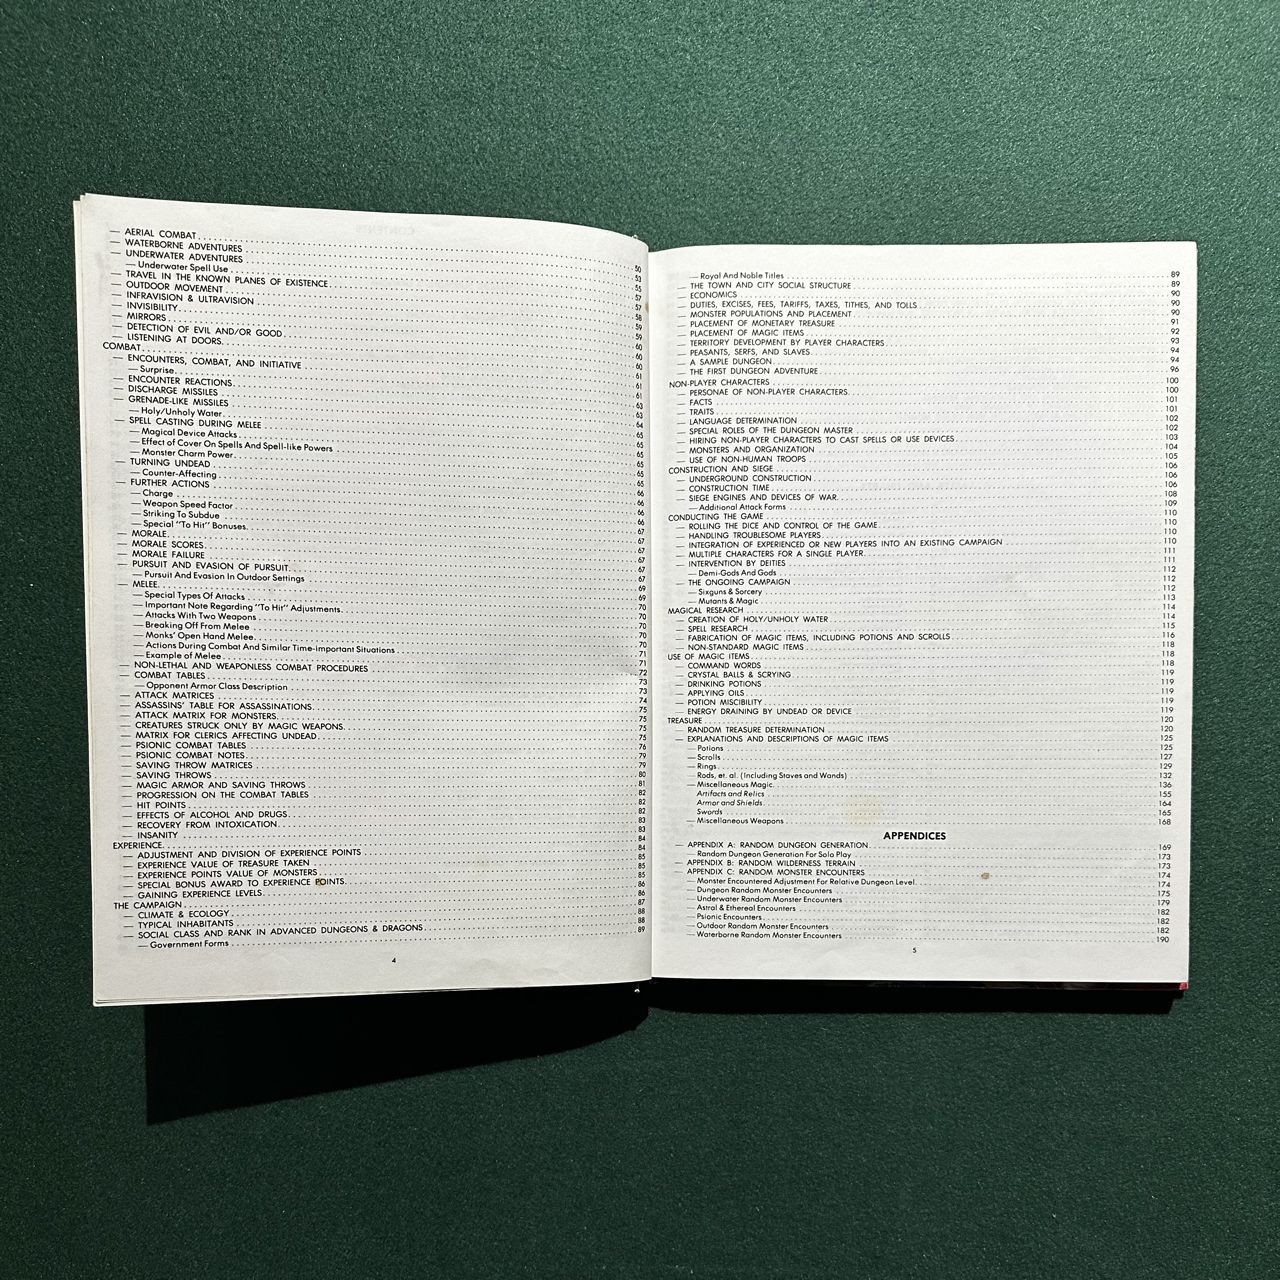 — AERIAL COMBAT 50
— WATERBORNE ADVENTURES 53
— UNDERWATER ADVENTURES 55
— Underwater Spell Use 57
— TRAVEL IN THE KNOWN PLANES OF EXISTENCE 57
— OUTDOOR MOVEMENT 58
— INFRAVISION & ULTRAVISION 59
— INVISIBILITY 59
— MIRRORS 60
— DETECTION OF EVIL AND/OR GOOD 60
— LISTENING AT DOORS 60
COMBAT 61
— ENCOUNTERS, COMBAT, AND INITIATIVE 61
— Surprise 61
— ENCOUNTER REACTIONS 63
— DISCHARGE MISSILES 63
— GRENADE-LIKE MISSILES 64
— Holy/Unholy Water 65
— SPELL CASTING DURING MELEE 65
— Magical Device Attacks 65
— Effect of Cover On Spells And Spell-like Powers 65
— Monster Charm Power 65
— TURNING UNDEAD 65
— Counter-Affecting 66
— FURTHER ACTIONS 66
— Charge 66
— Weapon Speed Factor 66
— Striking To Subdue 67
— Special "To Hit" Bonuses 67
— MORALE 67
— MORALE SCORES 67
— MORALE FAILURE 67
— PURSUIT AND EVASION OF PURSUIT 67
— Pursuit And Evasion In Outdoor Settings 69
— MELEE 69
— Special Types Of Attacks 70
— Important Note Regarding "To Hit" Adjustments 70
— Attacks With Two Weapons 70
— Breaking Off From Melee 70
— Monks' Open Hand Melee 70
— Actions During Combat And Similar Time-important Situations 71
— Example of Melee 71
— NON-LETHAL AND WEAPONLESS COMBAT PROCEDURES 72
— COMBAT TABLES 73
— Opponent Armor Class Description 73
— ATTACK MATRICES 74
— ASSASSINS' TABLE FOR ASSASSINATIONS 75
— ATTACK MATRIX FOR MONSTERS 75
— CREATURES STRUCK ONLY BY MAGIC WEAPONS 75
— MATRIX FOR CLERICS AFFECTING UNDEAD 75
— PSIONIC COMBAT TABLES 76
— PSIONIC COMBAT NOTES 79
— SAVING THROW MATRICES 79
— SAVING THROWS 80
— MAGIC ARMOR AND SAVING THROWS 81
— PROGRESSION ON THE COMBAT TABLES 82
— HIT POINTS 82
— EFFECTS OF ALCOHOL AND DRUGS 82
— RECOVERY FROM INTOXICATION 83
— INSANITY 83
EXPERIENCE 84
— ADJUSTMENT AND DIVISION OF EXPERIENCE POINTS 84
— EXPERIENCE VALUE OF TREASURE TAKEN 85
— EXPERIENCE POINTS VALUE OF MONSTERS 85
— SPECIAL BONUS AWARD TO EXPERIENCE POINTS 85
— GAINING EXPERIENCE LEVELS 86
THE CAMPAIGN 86
— CLIMATE & ECOLOGY 87
— TYPICAL INHABITANTS 88
— SOCIAL CLASS AND RANK IN ADVANCED DUNGEONS & DRAGONS 88
— Government Forms 89
4
— Royal And Noble Titles 89
— THE TOWN AND CITY SOCIAL STRUCTURE 89
— ECONOMICS 90
— DUTIES, EXCISES, FEES, TARIFFS, TAXES, TITHES, AND TOLLS 90
— MONSTER POPULATIONS AND PLACEMENT 90
— PLACEMENT OF MONETARY TREASURE 91
— PLACEMENT OF MAGIC ITEMS 92
— TERRITORY DEVELOPMENT BY PLAYER CHARACTERS 93
— PEASANTS, SERFS, AND SLAVES 94
— A SAMPLE DUNGEON 94
— THE FIRST DUNGEON ADVENTURE 96
NON-PLAYER CHARACTERS 100
— PERSONAE OF NON-PLAYER CHARACTERS 100
— FACTS 101
— TRAITS 101
— LANGUAGE DETERMINATION 102
— SPECIAL ROLES OF THE DUNGEON MASTER 102
— HIRING NON-PLAYER CHARACTERS TO CAST SPELLS OR USE DEVICES 103
— MONSTERS AND ORGANIZATION 104
— USE OF NON-HUMAN TROOPS 105
CONSTRUCTION AND SIEGE 106
— UNDERGROUND CONSTRUCTION 106
— CONSTRUCTION TIME 106
— SIEGE ENGINES AND DEVICES OF WAR 108
— Additional Attack Forms 109
CONDUCTING THE GAME 110
— ROLLING THE DICE AND CONTROL OF THE GAME 110
— HANDLING TROUBLESOME PLAYERS 110
— INTEGRATION OF EXPERIENCED OR NEW PLAYERS INTO AN EXISTING CAMPAIGN 110
— MULTIPLE CHARACTERS FOR A SINGLE PLAYER 111
— INTERVENTION BY DEITIES 111
— Demi-Gods And Gods 112
— THE ONGOING CAMPAIGN 112
— Sixguns & Sorcery 112
— Mutants & Magic 113
MAGICAL RESEARCH 114
— CREATION OF HOLY/UNHOLY WATER 114
— SPELL RESEARCH 115
— FABRICATION OF MAGIC ITEMS, INCLUDING POTIONS AND SCROLLS 116
— NON-STANDARD MAGIC ITEMS 118
USE OF MAGIC ITEMS 118
— COMMAND WORDS 118
— CRYSTAL BALLS & SCRYING 119
— DRINKING POTIONS 119
— APPLYING OILS 119
— POTION MISCIBILITY 119
— ENERGY DRAINING BY UNDEAD OR DEVICE 119
TREASURE 120
— RANDOM TREASURE DETERMINATION 120
— EXPLANATIONS AND DESCRIPTIONS OF MAGIC ITEMS 125
— Potions 125
— Scrolls 127
— Rings 129
— Rods, et. al. (Including Staves and Wands) 132
— Miscellaneous Magic 136
Artifacts and Relics 155
Armor and Shields 164
Swords 165
— Miscellaneous Weapons 168
APPENDICES
— APPENDIX A: RANDOM DUNGEON GENERATION 169
— Random Dungeon Generation For Solo Play 173
— APPENDIX B: RANDOM WILDERNESS TERRAIN 173
— APPENDIX C: RANDOM MONSTER ENCOUNTERS 174
— Monster Encountered Adjustment For Relative Dungeon Level 174
— Dungeon Random Monster Encounters 175
— Underwater Random Monster Encounters 179
— Astral & Ethereal Encounters 182
— Psionic Encounters 182
— Outdoor Random Monster Encounters 182
— Waterborne Random Monster Encounters 190
5